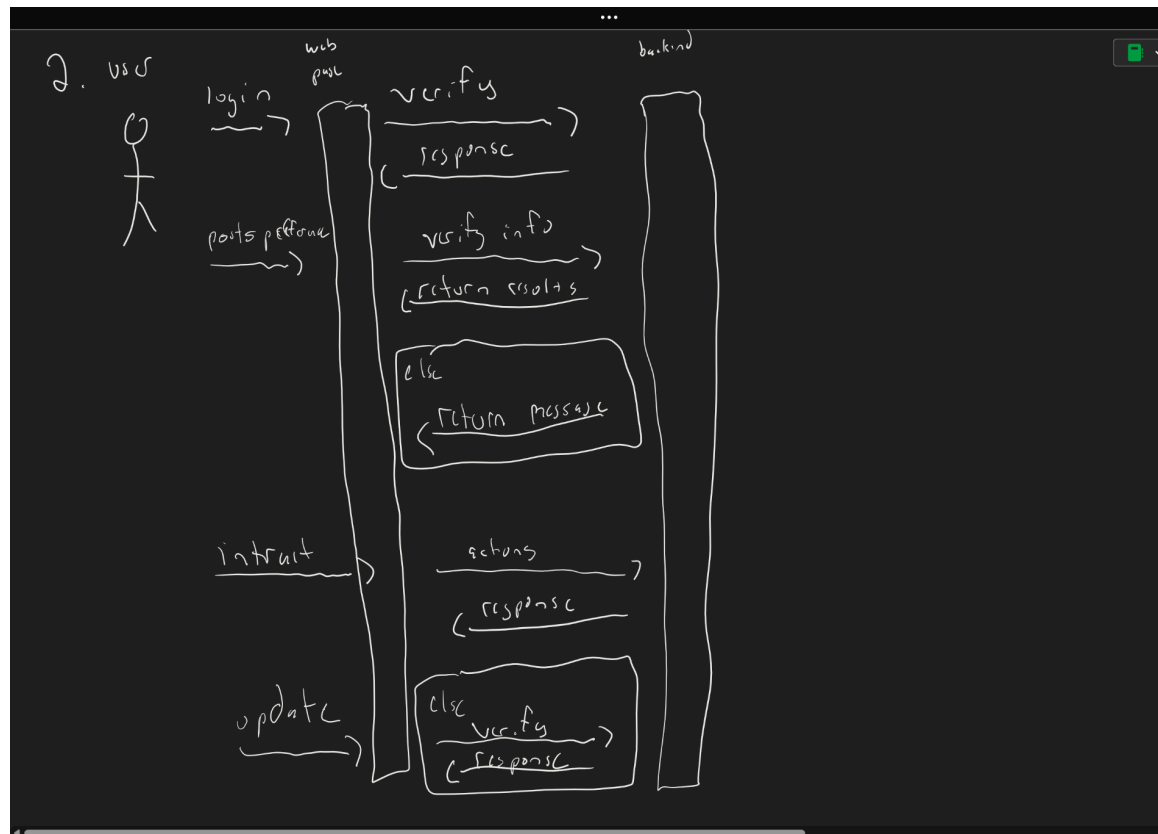 2. user
web
page
backend
login
verify
response
posts
verify info
return results
else
return message
intract
actions
response
update
else
verify
response